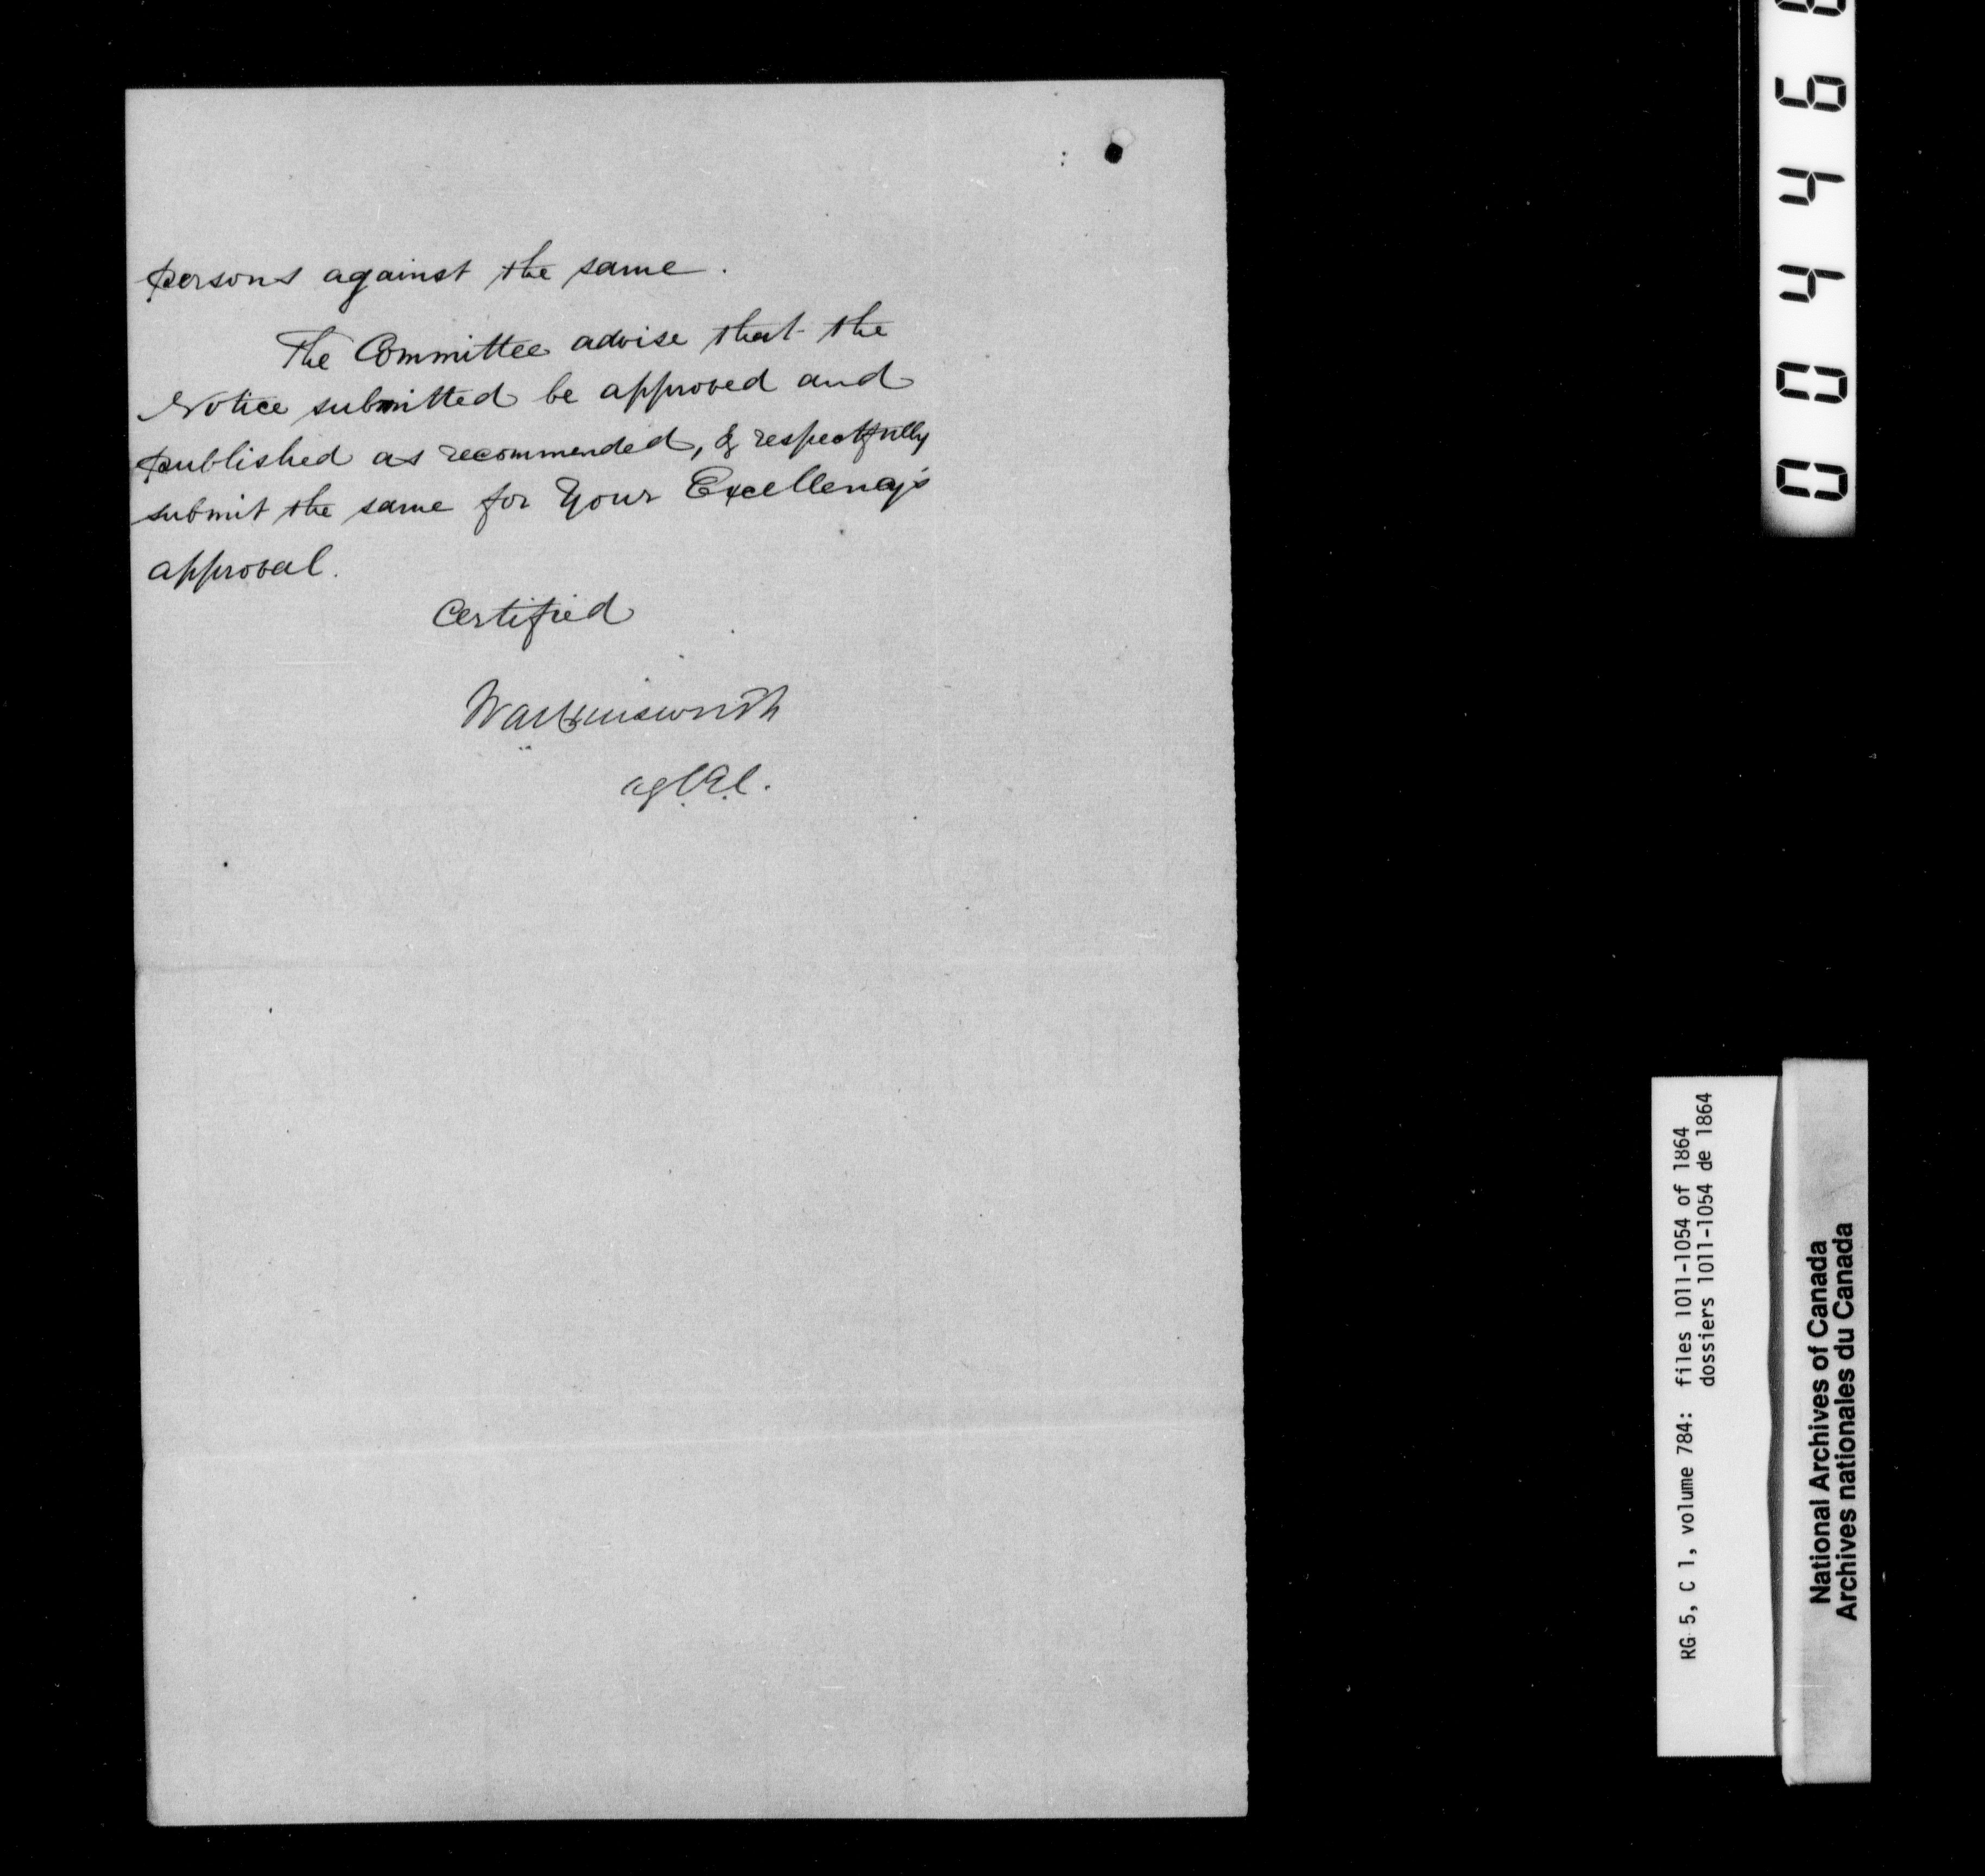 persons against the same.
The Committee advise that the
Notice submitted be approved and
published as recommended, & respectfully
submit the same for Your Excellency's
approval.
Certified
0 0 4 4 6
RG 5, C 1, volume 784: files 1011-1054 of 1864
dossiers 1011-1054 de 1864
National Archives of Canada
Archives nationales du Canada